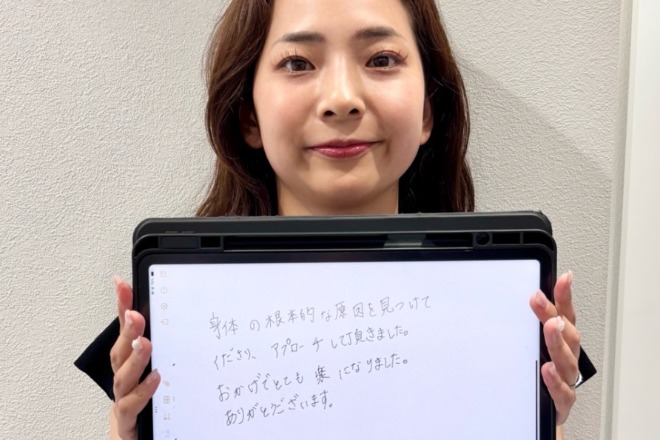 身体の根本的な原因を見つけて
くださり、アプローチして頂きました。
おかげでとても楽になりました。
ありがとうございます。